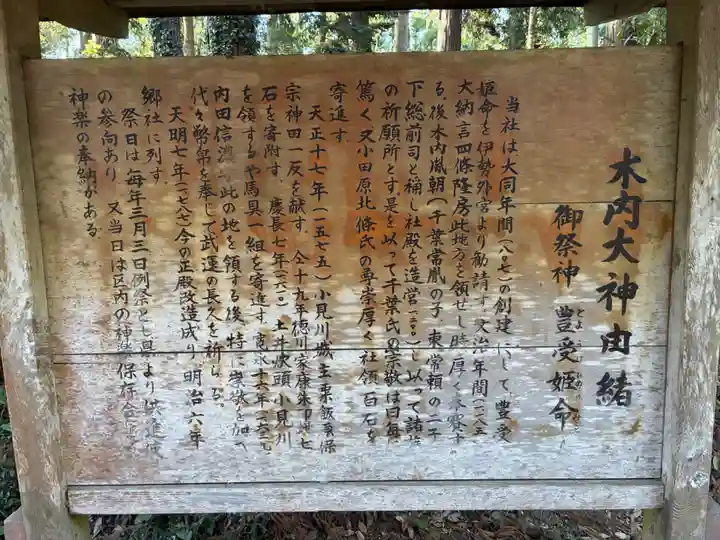 木内大神由緒
御祭神 豊受姫命
とようけひめのみこと
当社は大同年間(八〇七)の創建にして、豊受
姫命を伊勢外宮より勧請す。文治年間(一一八五
大納言四條隆房此地方を領せし時厚く
る。後木内胤朝(千葉常胤の子、東常頼の二子
下総前司と稱し社殿を造営し以って
の祈願所とす是を以って千葉氏の崇敬は日毎に
篤く又小田原北條氏の尊崇厚く社領百石を
寄進す
天正十七年(一五七五)小見川城主粟飯原保
宗神田一反を献ず。仝十九年徳川家康朱印地七
石を寄附す。慶長七年 土井 小見川
を領するや馬具一組を寄進す。寛永十六年
内田信濃 此の地を領する後、特に崇敬を加へ
代々幣帛を奉じて武運の長久を祈らる。
天明七年(一七八七)今の正殿改造成り、明治六年
郷社に列す。
祭日は毎年三月三日例祭とし県より供進
の参向あり、又当日は区内の神楽保存会
神楽の奉納がある。